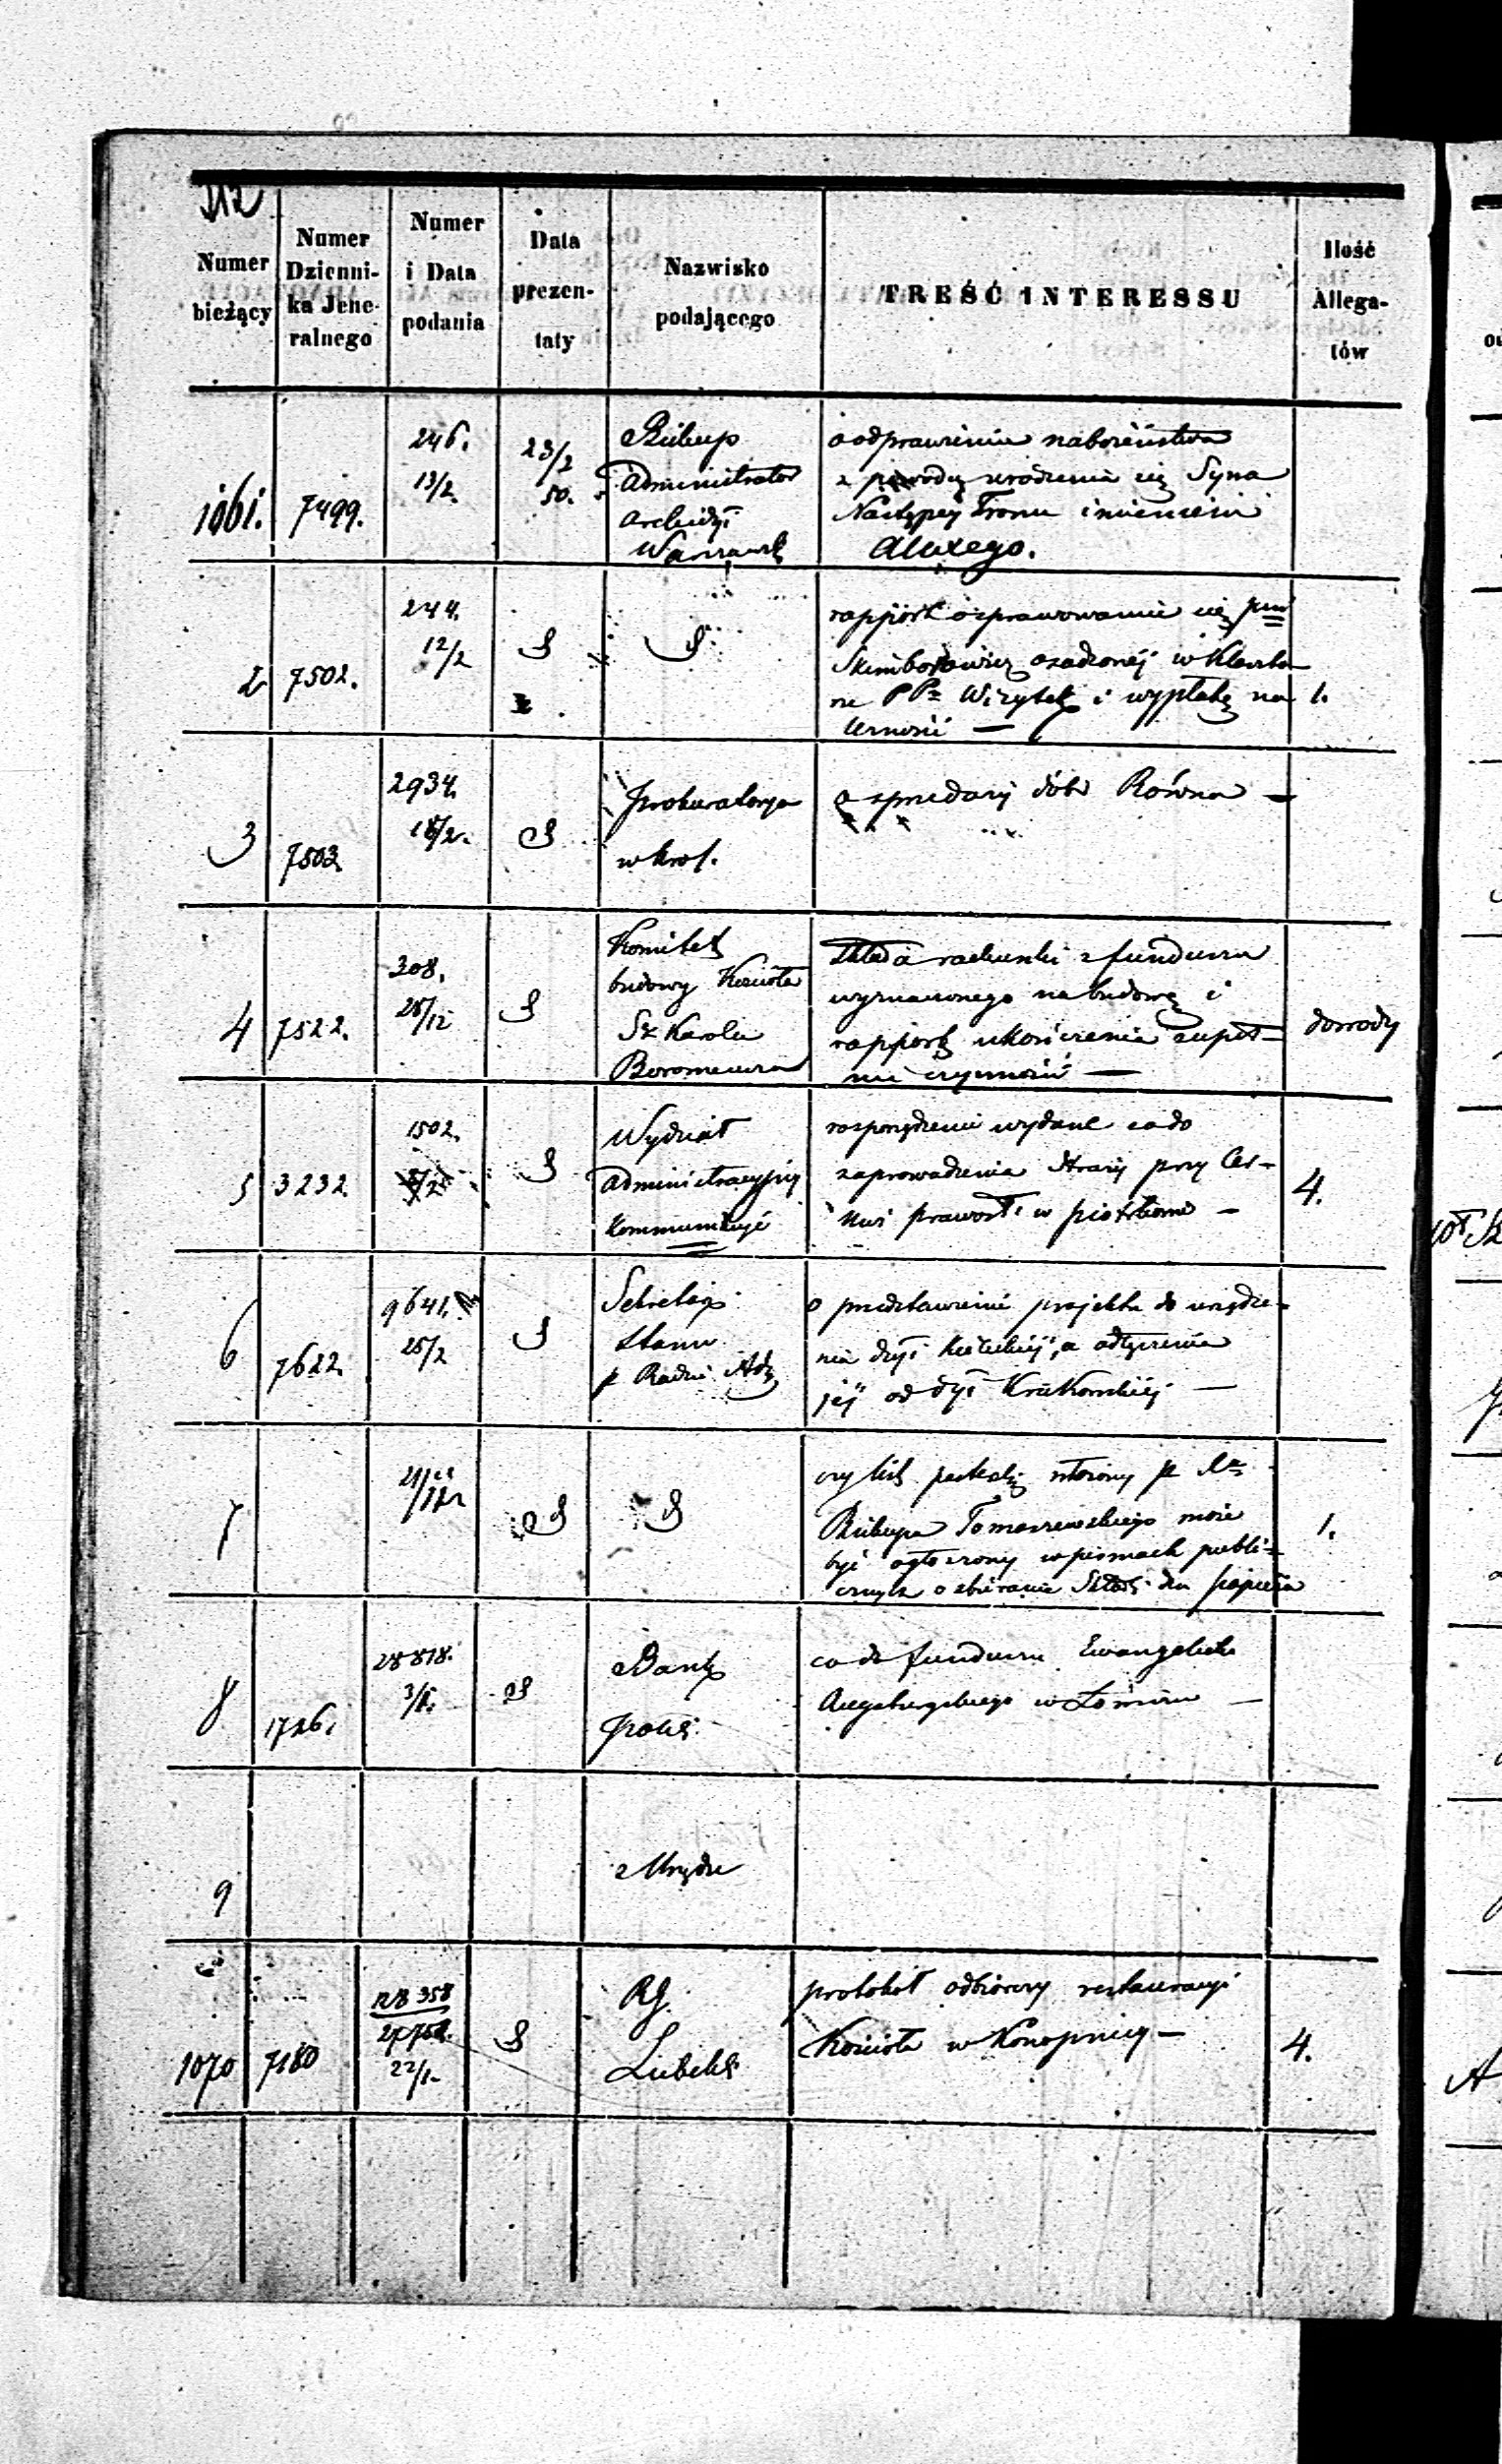 112
Numer
bieżący
Numer
Dzienni-
ka Jene-
ralnego
Numer
i Data
podania
Data
prezen-
taty
Nazwisko
podającego
TREŚĆ INTERESSU
Ilość
Allega-
tów
1061.
7499.
246.
13/2.
23/2
50.
Biskup
Administrator
Archidyi
Warszawsk
o odprawieniu nabożeństwa
z powodu urodzenia się Syna
Następcy Tronu imieniem
Alexego.
2
7502.
244.
12/2
rapport o sprawowaniu się
Skimborowicz osadzonej w Klaszto
rze PP Wizytek i wypłatę na
leżność —
1.
3
7503
2934.
18/2.
Prokuratorya
w Krol.
o sprzedaży dóbr Równa —
4
7522.
308.
28/12
Komitet
budowy Kościoła
Sr Karola
Boromeusza
składa rachunki z funduszu
wyznaczonego na budowę i
rapport ukończenia zupeł-
nie czynność —
dowody
5
3232
1502.
Wydział
Administracyjny
kommunikuje
rozporządzenie wydane co do
zaprowadzenia straży przy Cer-
kwi prawosł. w Piotrkowie —
4.
6
7622
9641.
25/2
Sekretarz
Stanu
p Radzie Adz
o przedstawienie projektu do urządze-
nia dyi Kieleckiej, a odłączenia
jéj od dyi Krakowskiéj —
7
czy list pasterski złożony p
Biskupa Tomaszewskiego może
być ogłoszony w pismach publi-
cznych o zbieranie Skład. dla papieża
1.
8
1726.
28818.
Bank
Polski
co do funduszu Ewangelicko
Augsburgskiego w Łomży —
9
z Urzędu
1070
7180
358
22/1
RG.
Lubelski
protokół odbiorczy restauracyi
Kościoła w Konopnicy —
4.